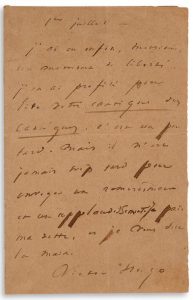 1er juillet
j'ai eu enfin, monsieur,
un moment de liberté.
j'en ai profité pour
lire votre cantique des
cantiques. c'est un peu
tard. mais il n'est
jamais trop tard pour
envoyer un remerciement
et un applaudissement. je paie
ma dette, et je vous serre
la main.
Victor Hugo